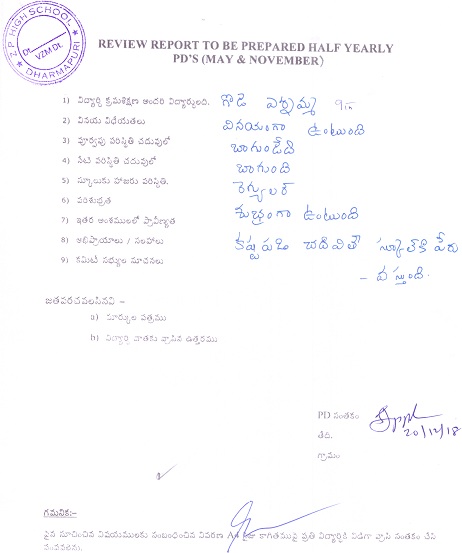 Z.P HIGH SCHOOL
Dt. VZM Dt.
DHARMAPURI
REVIEW REPORT TO BE PREPARED HALF YEARLY
PD'S (MAY & NOVEMBER)
1) విద్యార్థి క్రమశిక్షణ అందరి విద్యార్థులది. గొడె
2) వినయ విధేయతలు వినయంగా ఉంటుంది
3) పూర్వపు పరిస్థితి చదువులో బాగుండేది
4) నేటి పరిస్థితి చదువులో బాగుంది
5) స్కూలుకు హాజరు పరిస్థితి. రెగ్యులర్
6) పరిశుభ్రత శుభ్రంగా ఉంటుంది
7) ఇతర అంశములలో ప్రావీణ్యత
8) అభిప్రాయాలు / సలహాలు కష్టపడి చదివితే స్కూల్‌కి పేరు
9) కమిటీ సభ్యుల సూచనలు - వస్తుంది.
జతపరచవలసినవి :-
a) మార్కుల పత్రము
b) విద్యార్థి దాతకు వ్రాసిన ఉత్తరము
PD సంతకం
తేది. 20/12/18
గ్రామం
గమనిక:-
పైన సూచించిన విషయములకు సంబంధించిన వివరణ A4 సైజు కాగితముపై ప్రతి విద్యార్థికి విడిగా వ్రాసి సంతకం చేసి
పంపవలెను.